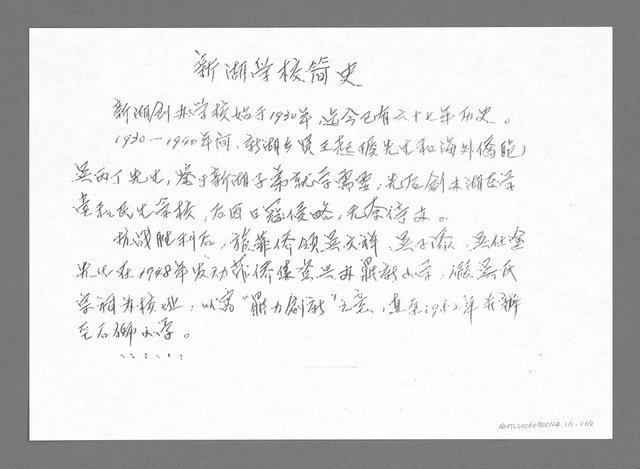 新湖学校简史
新湖创办学校始于1930年，迄今已有六十七年历史。
1930—1940年间，新湖乡贤王起 先生和海外僑胞
吴丙丁先生，鉴于新湖子弟就学需要，先后创办湖 学
堂和民生学校，后因日寇侵略，无奈停办。
抗战胜利后，旅菲侨领吴文祥、吴 、吴仕
先生在1948年发动菲侨集资兴办鼎新小学，假吴氏
宗祠为校址，以寓“鼎力创新”之意，直至1952年 新
 石狮小学。
......
NMTL20060900124_1/1.01/2